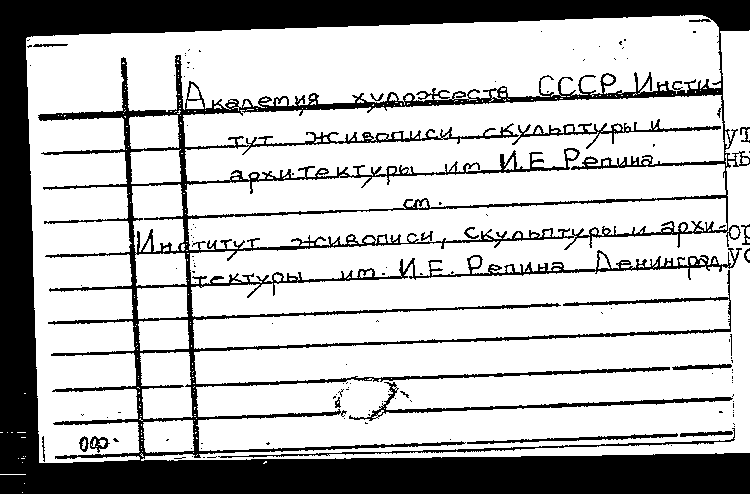 Академия художеств СССР. Инсти-
тут живописи, скульптуры и
архитектуры им. И.Е. Репина.
см.
Институт живописи, скульптуры и архи-
тектуры им. И.Е. Репина. Ленинград.